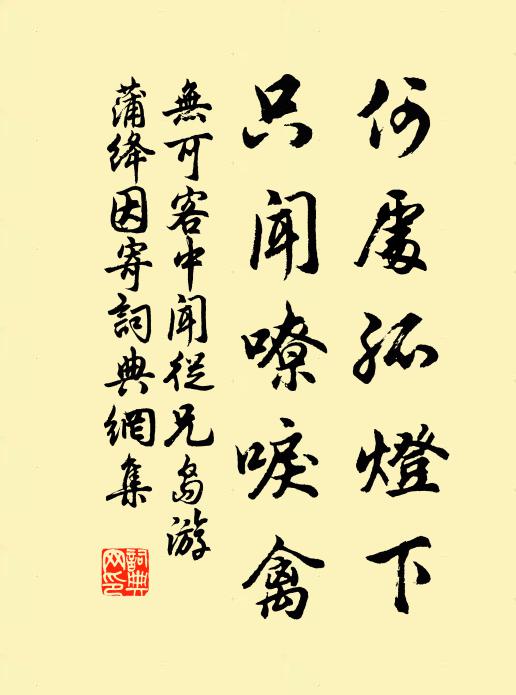 何處孤燈下
只聞嘹唳禽
無可客中聞從兄島游
蒲絳因寄詞典網集
詞典網印